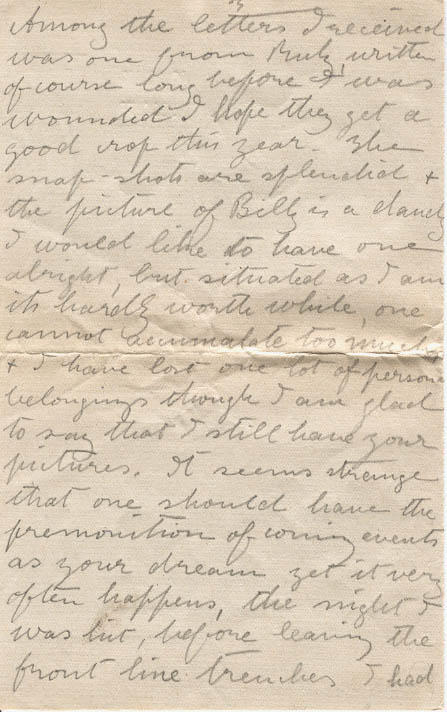 Among the letters I received
was one from Ruby written
of course long before I was
wounded I hope they get a
good crop this year. The
snap-shots are splendid +
the picture of Billy is a dandy
I would like to have one
alright, but situated as I am
its hardly worth while, one
cannot accumalate too much
+ I have lost one lot of person
belongings though I am glad
to say that I still have your
pictures. It seems strange
that one should have the
premonition of coming events
as your dream yet it very
often happens, the night I
was hit, before leaving the
front line trenches I had